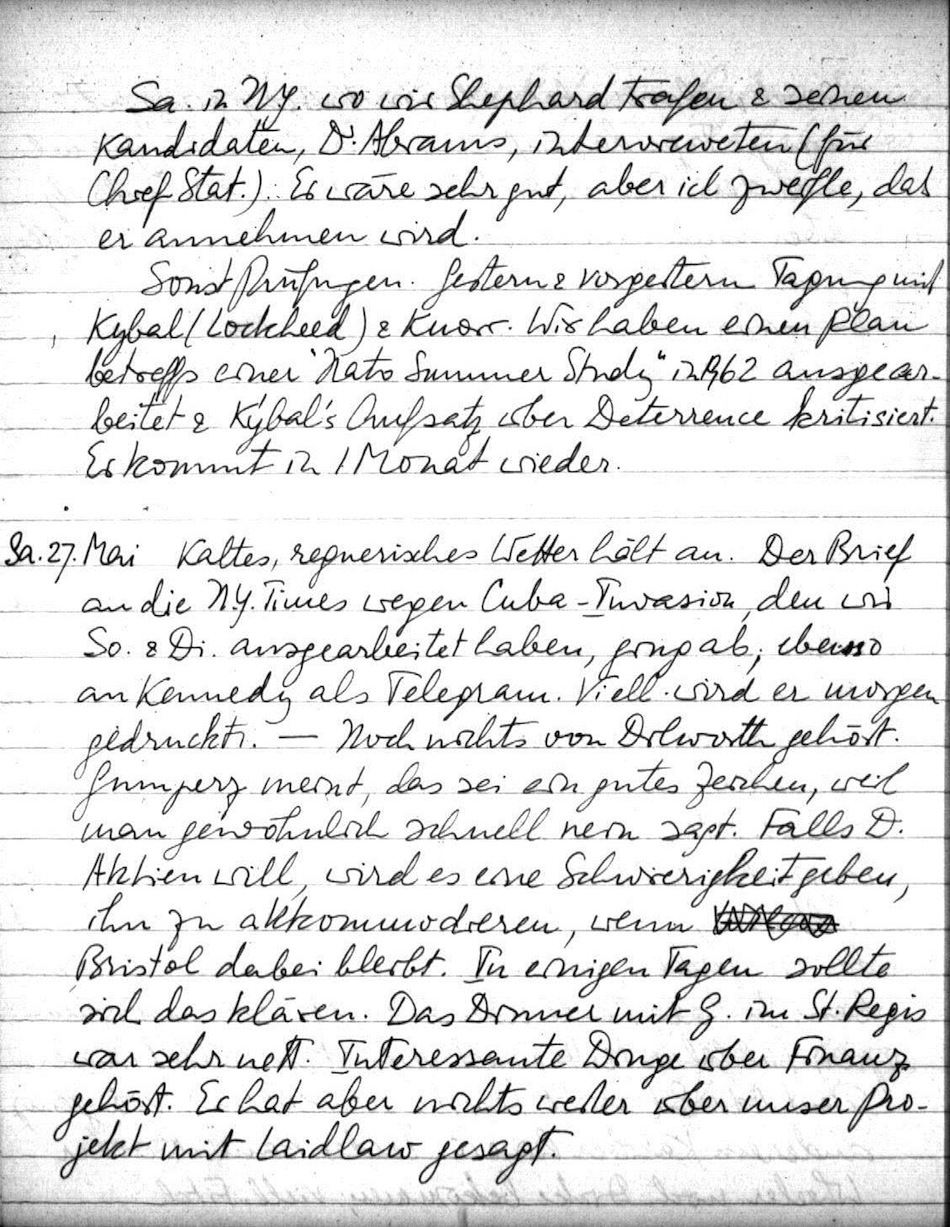 Sa. in N.Y. wo wir Shephard trafen & seinen
Kandidaten, Dr. Abrams, interviewten (für
Chief Stat.). Er wäre sehr gut, aber ich zweifle, daß
er annehmen wird.
Sonst Prüfungen. Gestern & vorgestern Tagung mit
Kybal (Lockheed) & Knorr. Wir haben einen Plan
betreffs einer "Nato Summer Study" in 1962 ausgear-
beitet & Kybal's Aufsatz über Deterrence kritisiert.
Er kommt in 1 Monat wieder.
Sa. 27. Mai Kaltes, regnerisches Wetter hält an. Der Brief
an die N.Y. Times wegen Cuba-Invasion, den wir
So. & Di. ausgearbeitet haben, ging ab; ebenso
an Kennedy als Telegram. Viell. wird er morgen
gedruckt. — Noch nichts von Dilworth gehört.
Gumperz meint, das sei ein gutes Zeichen, weil
man gewöhnlich schnell nein sagt. Falls D.
Aktien will, wird es eine Schwierigkeit geben,
ihn zu akkommodieren, wenn
Bristol dabei bleibt. In einigen Tagen sollte
sich das klären. Das Dinner mit G. im St. Regis
war sehr nett. Interessante Dinge über Finanz
gehört. Er hat aber nichts weiter über unser Pro-
jekt mit Laidlaw gesagt.